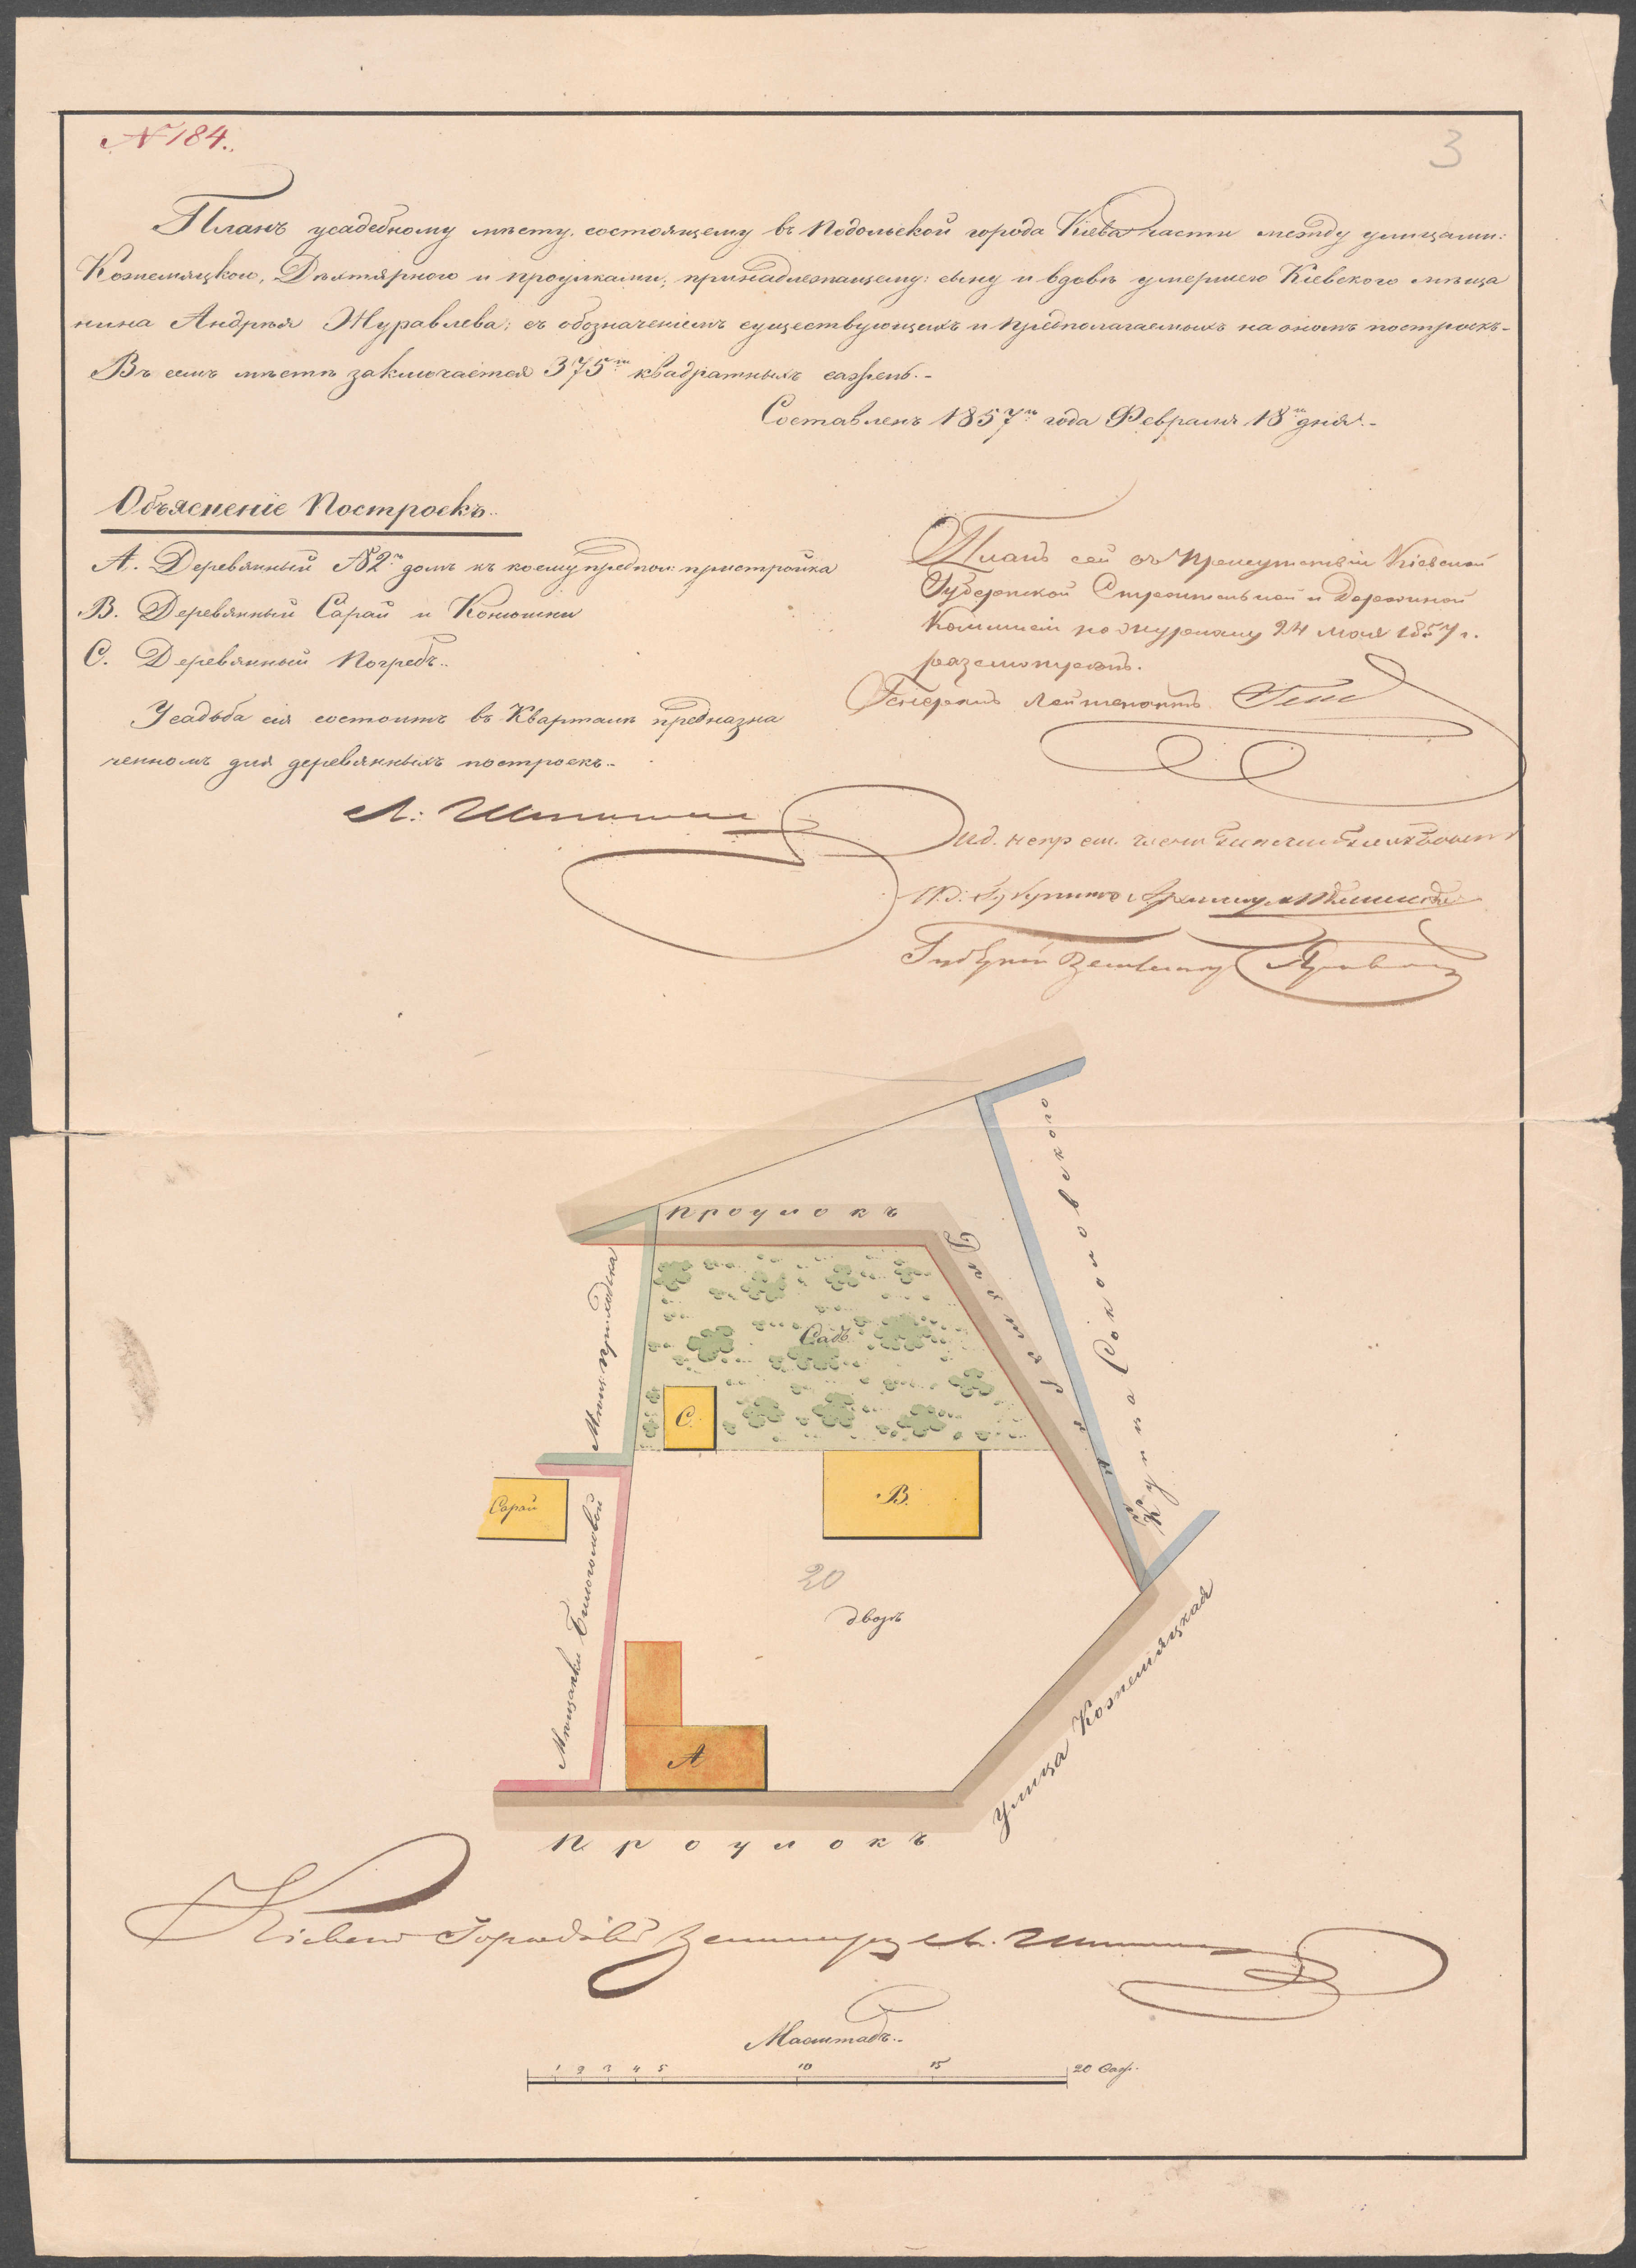 № 184.
3
Планъ усадебному мѣсту, состоящему въ Подольской города Кіева части между улицами:
Кожемяцкою, Дѣхтярною и проулками; принадлежащему: сыну и вдовѣ умершего Кіевского мѣща
нина Андрѣя Журавлева; съ обозначеніемъ существующихъ и предполагаемыхъ на ономъ построекъ.-
Въ семъ мѣстѣ заключается 375ть квадратныхъ сажень.-
Составленъ 1857го года Февраля 18го дня.-
Объясненіе Построекъ.
А. Деревянный №2й домъ къ коему предпол: пристройка
В. Деревянный Сарай и Конюшни
С. Деревянный Погребъ..
Усадьба сія состоитъ въ Кварталѣ предназна
ченномъ для деревянныхъ построекъ.-
Планъ сей въ Присутствіи Кіевской
Губернской Строительной и Дорожной
Коммисіи по журналу 24 мая 1857 г.
разсмотренъ.
Генералъ Лейтенантъ
Проулокъ
Купца Соколовского
Мѣщ: Приходька
Садъ
С.
В.
Сарай
Мѣщанки Бѣлоголовой
20
дворъ
А
Улица Кожемяцкая
Проулокъ
Кіевскій Городовой Землемеръ
Масштабъ..
1 2 3 4 5 10 15 20 Саж.